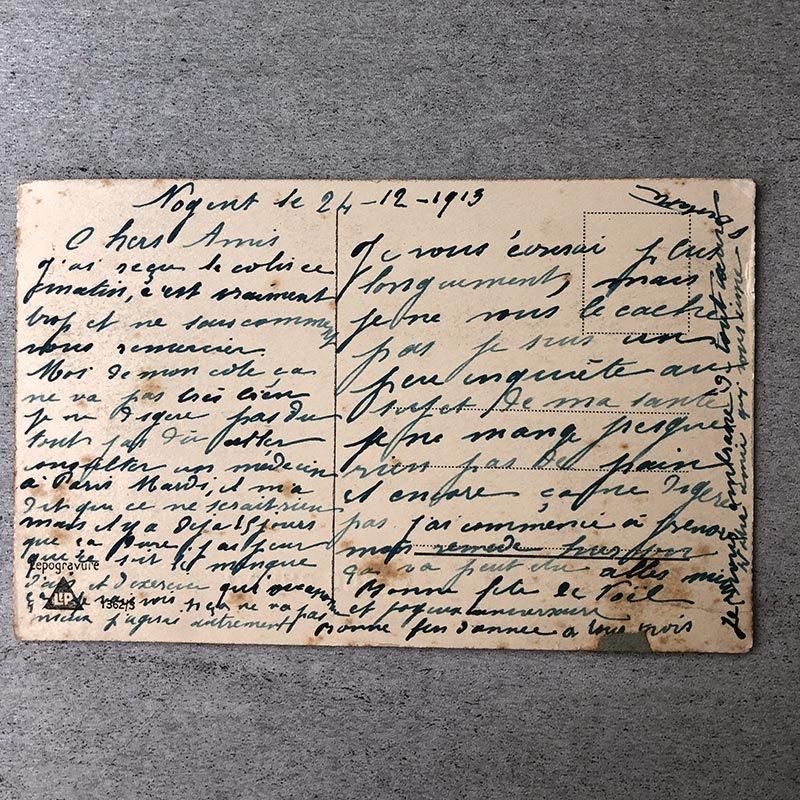 Nogent le 24-12-1913
Chers Amis
J'ai reçu le colis ce
matin, c'est vraiment
trop et ne sais comment
vous remercier.
Moi de mon côté ça
ne va pas très bien
je ne digère pas du
tout pas dû aller
consulter un médecin
à Paris Mardi, il m'a
dit que ce ne serait rien
mais il y a déjà 15 jours
que ça dure. J'ai peur
que ce soit le manque
d'air et d'exercice qui
si ça ne va pas
mieux j'agirai autrement
Je vous écrirai plus
longuement, mais
je ne vous le cache
pas je suis un
peu inquiète au
sujet de ma santé
je ne mange presque
rien pas de pain
et encore ça ne digère
pas. j'ai commencé à prendre
mon remède hier soir
ça va peut être aller mieux
Bonne fête de Noël
et joyeux anniversaire
Bonne fin d'année à tous trois
Je vous embrasse de tout cœur
Votre amie qui vous aime
Lepogravure
LP
1362/3